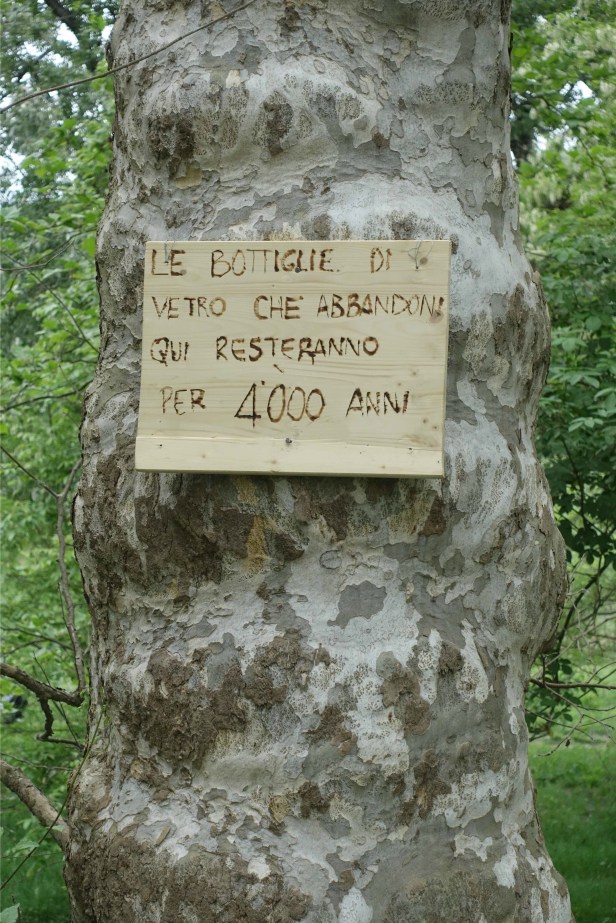 LE BOTTIGLIE DI
VETRO CHE ABBANDONI
QUI RESTERANNO
PER 4'000 ANNI